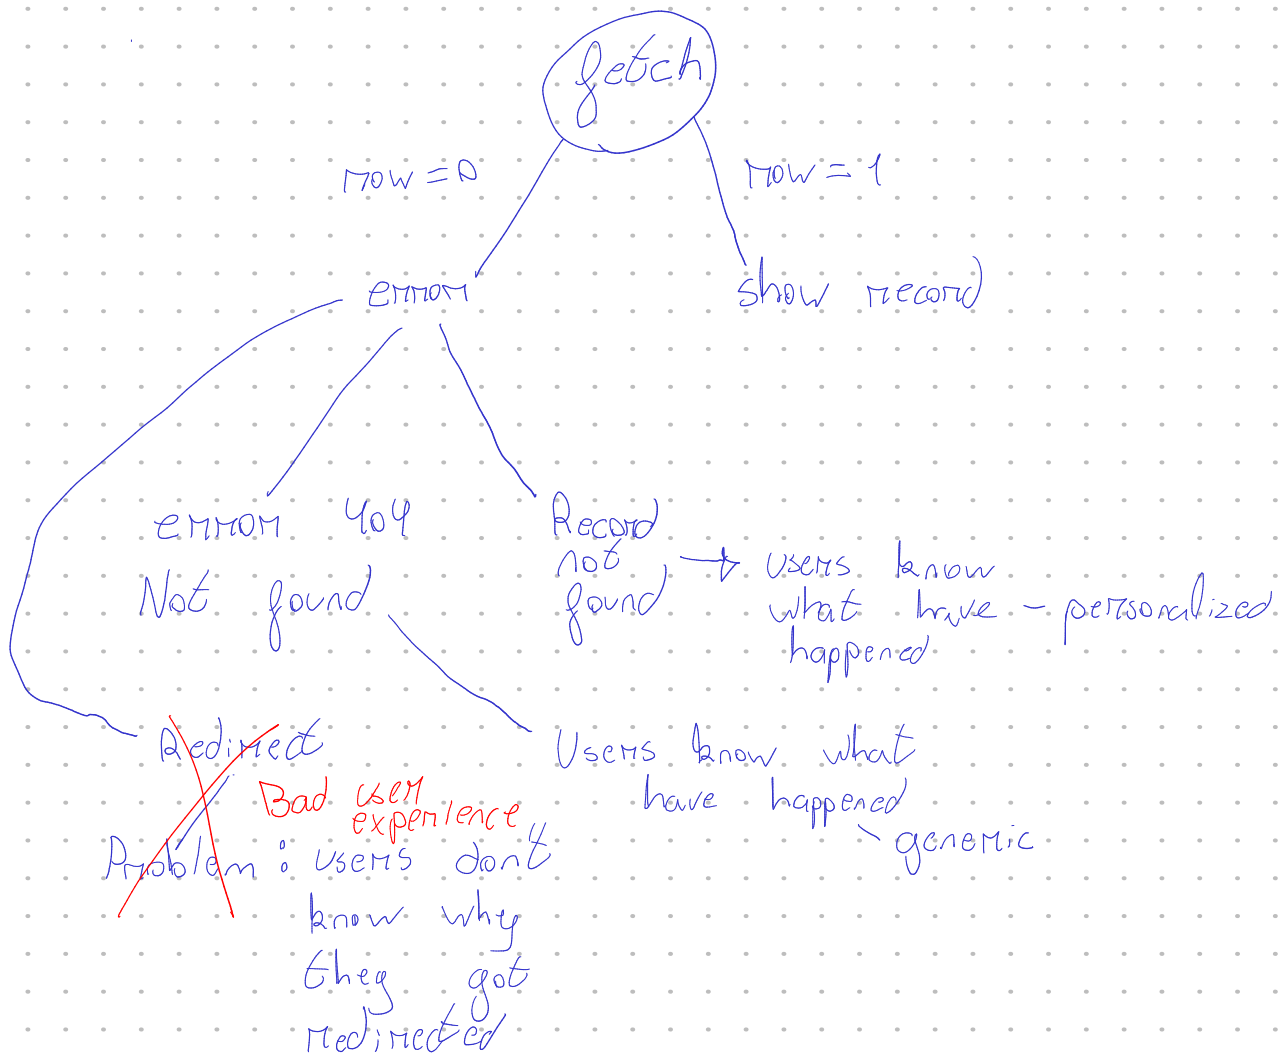 fetch
row = 0
row = 1
error
show record
error 404
Not found
Record
not
found
users know
what have - personalized
happened
Redirect
Bad user
experience
Problem : users don't
know why
they got
redirected
Users know what
have happened
generic